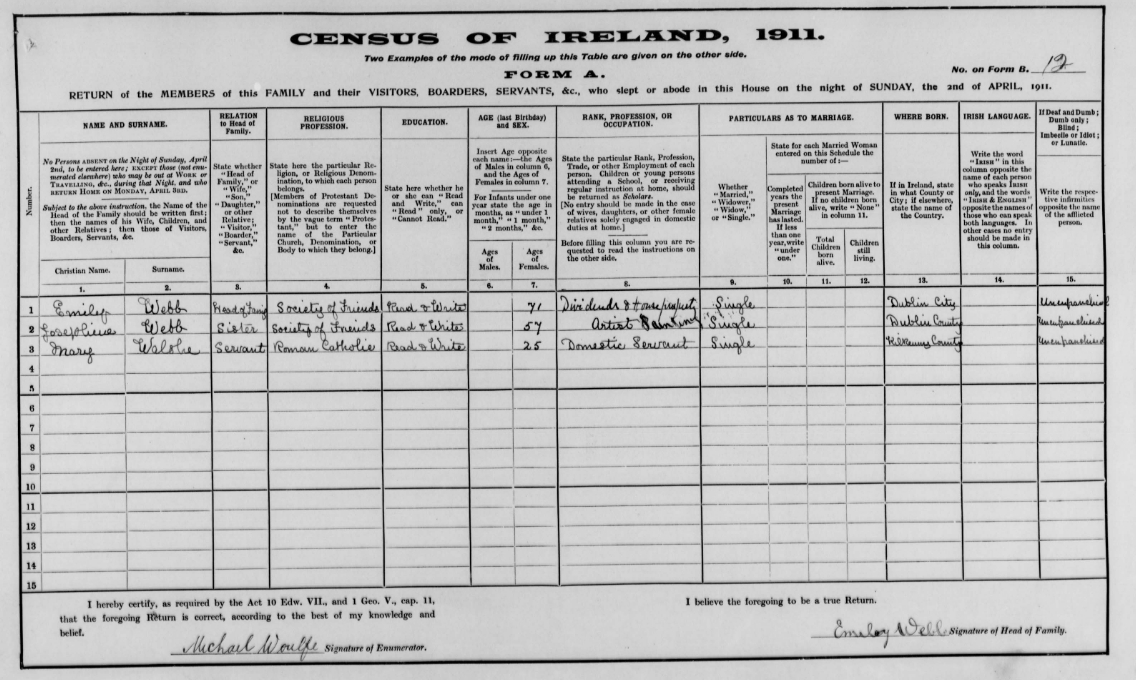 CENSUS OF IRELAND, 1911.
Two Examples of the mode of filling up this Table are given on the other side.
FORM A.
No. on Form B. 12
RETURN of the MEMBERS of this FAMILY and their VISITORS, BOARDERS, SERVANTS, &c., who slept or abode in this House on the night of SUNDAY, the 2nd of APRIL, 1911.
Number.
NAME AND SURNAME.
No Persons ABSENT on the Night of Sunday, April
2nd, to be entered here; EXCEPT those (not enu-
merated elsewhere) who may be out at WORK or
TRAVELLING, &c., during that Night, and who
RETURN HOME ON MONDAY, APRIL 3RD.
Subject to the above instruction, the Name of the
Head of the Family should be written first;
then the names of his Wife, Children, and
other Relatives; then those of Visitors,
Boarders, Servants, &c.
Christian Name.
Surname.
RELATION
to Head of
Family.
State whether
"Head of
Family," or
"Wife,"
"Son,"
"Daughter,"
or other
Relative;
"Visitor,"
"Boarder,"
"Servant,"
&c.
RELIGIOUS
PROFESSION.
State here the particular Re-
ligion, or Religious Denom-
ination, to which each person
belongs.
[Members of Protestant De-
nominations are requested
not to describe themselves
by the vague term "Protes-
tant," but to enter the
name of the Particular
Church, Denomination, or
Body to which they belong.]
EDUCATION.
State here whether he
or she can "Read
and Write," can
"Read" only, or
"Cannot Read."
AGE (last Birthday)
and SEX.
Insert Age opposite
each name:—the Ages
of Males in column 6,
and the Ages of
Females in column 7.
For Infants under one
year state the age in
months, as "under 1
month," "1 month,"
"2 months," &c.
Ages
of
Males.
Ages
of
Females.
RANK, PROFESSION, OR
OCCUPATION.
State the particular Rank, Profession,
Trade, or other Employment of each
person. Children or young persons
attending a School, or receiving
regular instruction at home, should
be returned as Scholars.
[No entry should be made in the case
of wives, daughters, or other female
relatives solely engaged in domestic
duties at home.]
Before filling this column you are re-
quested to read the instructions on
the other side.
PARTICULARS AS TO MARRIAGE.
Whether
"Married,"
"Widower,"
"Widow,"
or "Single."
State for each Married Woman
entered on this Schedule the
number of:—
Completed
years the
present
Marriage
has lasted.
If less
than one
year, write
"under
one."
Children born alive to
present Marriage.
If no children born
alive, write "None"
in column 11.
Total
Children
born
alive.
Children
still
living.
WHERE BORN.
If in Ireland, state
in what County or
City; if elsewhere,
state the name of
the Country.
IRISH LANGUAGE.
Write the word
"IRISH" in this
column opposite the
name of each person
who speaks IRISH
only, and the words
"IRISH & ENGLISH"
opposite the names of
those who can speak
both languages. In
other cases no entry
should be made in
this column.
If Deaf and Dumb;
Dumb only;
Blind;
Imbecile or Idiot;
or Lunatic.
Write the respec-
tive infirmities
opposite the name
of the afflicted
person.
1. 2. 3. 4. 5. 6. 7. 8. 9. 10. 11. 12. 13. 14. 15.
1 Emily Webb Head of Family Society of Friends Read & Write 71 Dividends & House property Single Dublin City Unenfranchised
2 Josephine Webb Sister Society of Friends Read & Write 57 Artist Painting "Single" Dublin County Unenfranchised
3 Mary Walshe Servant Roman Catholic Read & Write 25 Domestic Servant Single Kilkenny County Unenfranchised
4
5
6
7
8
9
10
11
12
13
14
15
I hereby certify, as required by the Act 10 Edw. VII., and 1 Geo. V., cap. 11,
that the foregoing Return is correct, according to the best of my knowledge and
belief.
Michael Woulfe Signature of Enumerator.
I believe the foregoing to be a true Return.
Emily Webb Signature of Head of Family.